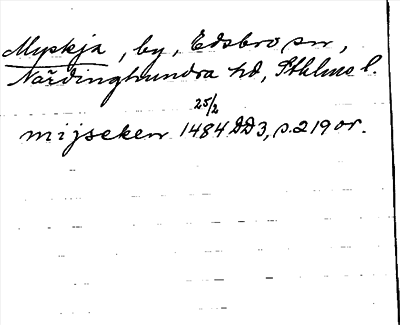 Myskja, by, Edsbro sn,
Närdinghundra hd, Sthlms l.
25/2
mijseken 1484 DD3, s. 219 or.